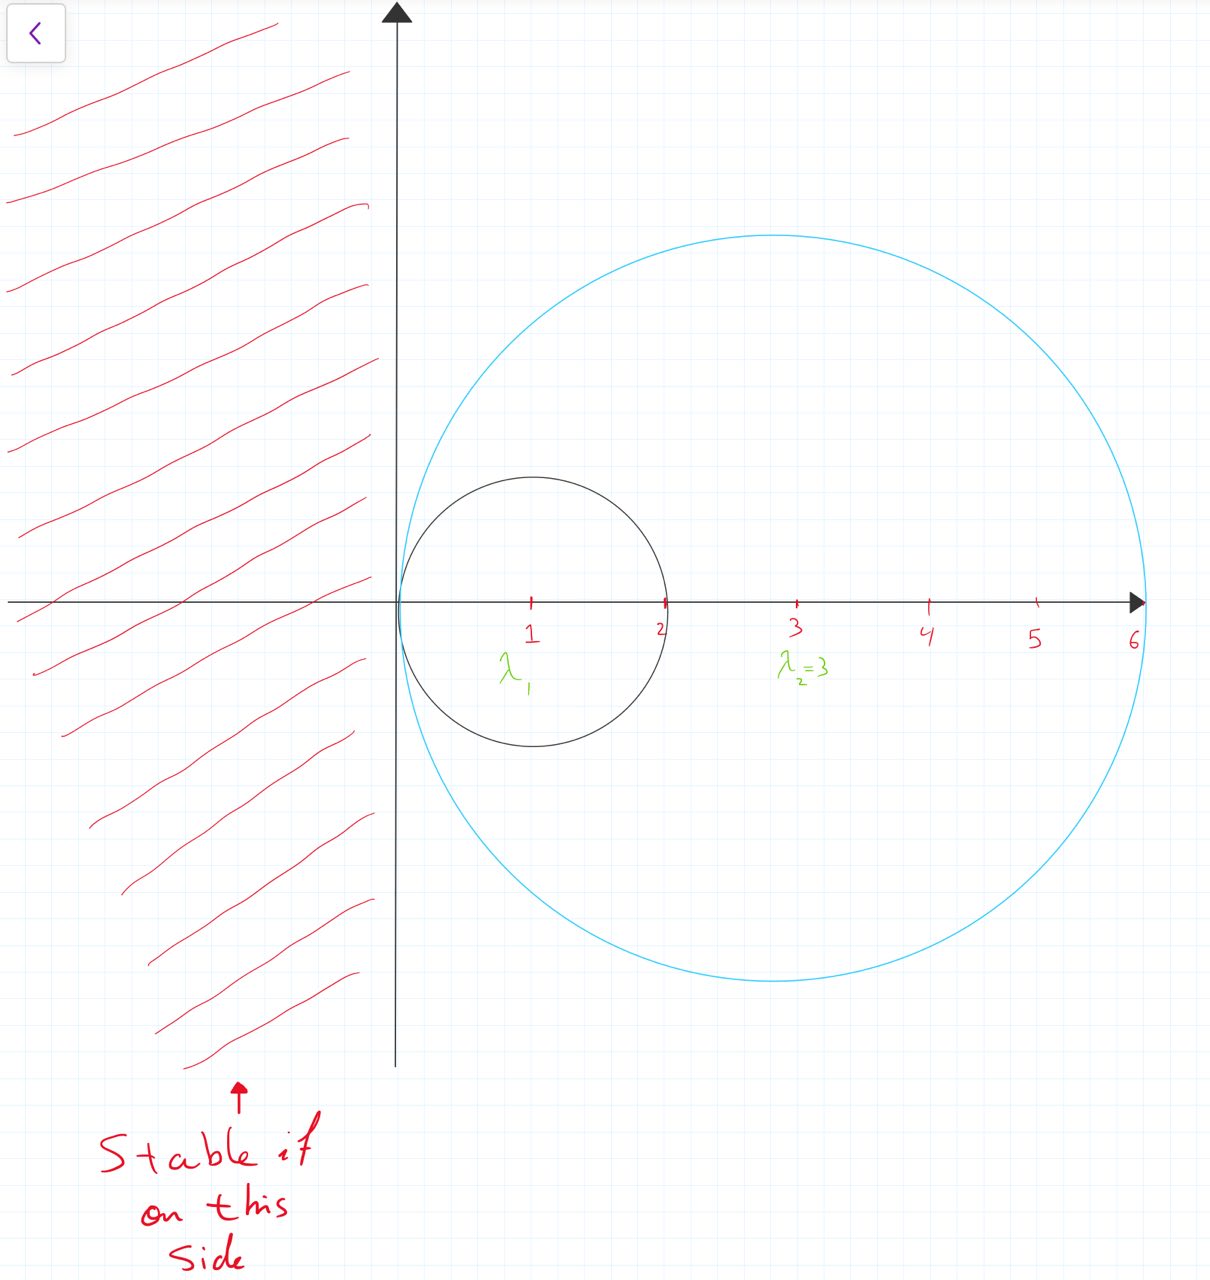 1 2 3 4 5 6
λ₁ λ₂=3
Stable if
on this
side